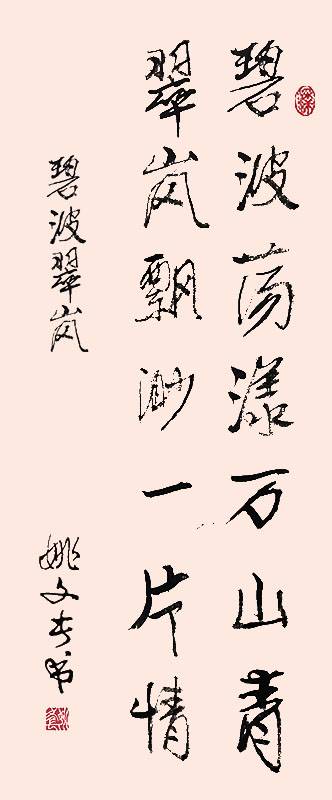 碧波荡漾万山青
翠岚飘渺一片情
碧波翠岚
姚文长书